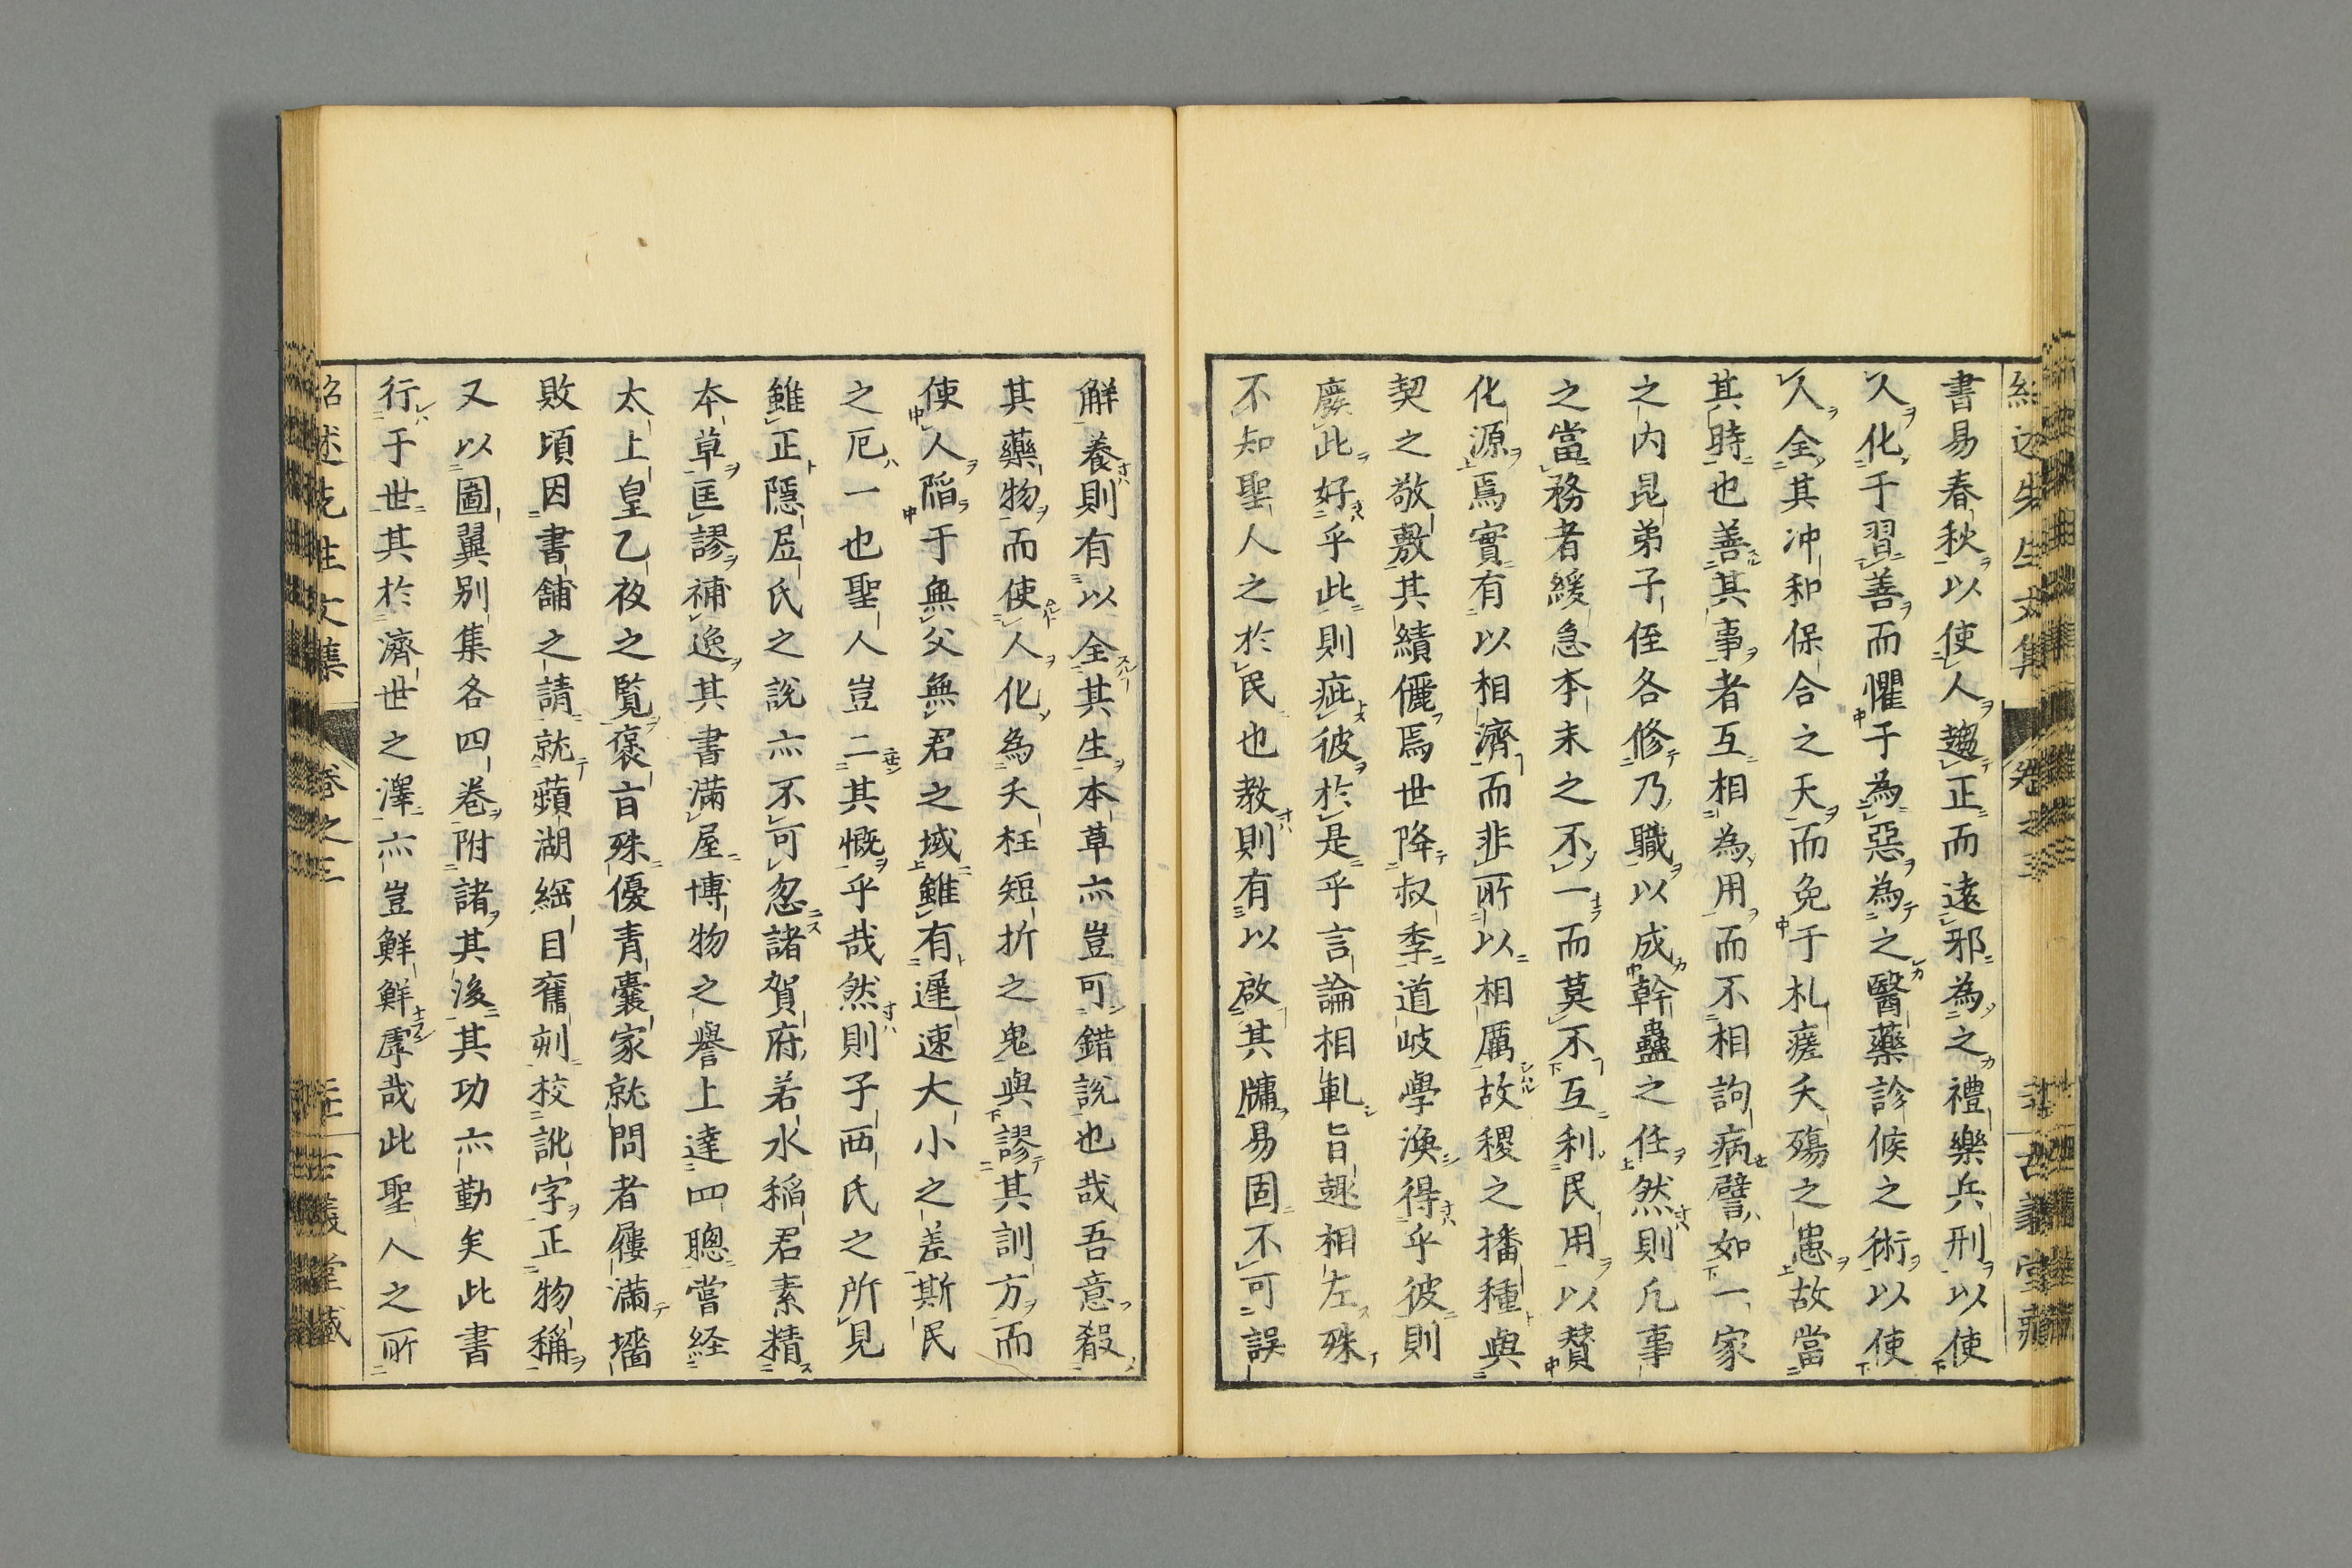 書易春秋以使人趨正而遠邪為之禮樂兵刑以使
人化于習善而懼于為惡為之醫藥診候之術以使
人全其冲和保合之天而免于札瘥夭殤之患故當
其時也善其事者互相為用而不相詢病譬如一家
之内昆弟子侄各修乃職以成幹蠱之任然則凡事
之當務者緩急本末之不一而莫不互利民用以賛
化源焉實有以相濟而非所以相厲故稷之播種與
契之敬敷其績儷焉世降叔季道岐學渙得乎彼則
廢此好乎此則疵彼於是乎言論相軋旨趣相左殊
不知聖人之於民也教則有以啟其牖易固不可誤
解養則有以全其生本草亦豈可錯說也哉吾意殺
其藥物而使人化為夭枉短折之鬼與謬其訓方而
使人陷于無父無君之域雖有遲速大小之差斯民
之厄一也聖人豈二其慨乎哉然則子西氏之所見
雖正隱居氏之說亦不可忽諸賀府若水稲君素精
本草匡謬補逸其書滿屋博物之譽上達四聰嘗経
太上皇乙夜之覧褒音殊優青囊家就問者屨滿墻
敗頃因書舗之請就蘋湖綱目舊刻校訛字正物稱
又以圖翼別集各四卷附諸其後其功亦勤矣此書
行于世其於濟世之澤亦豈鮮鮮虖哉此聖人之所
紹述先生文集 卷之三 古義堂藏